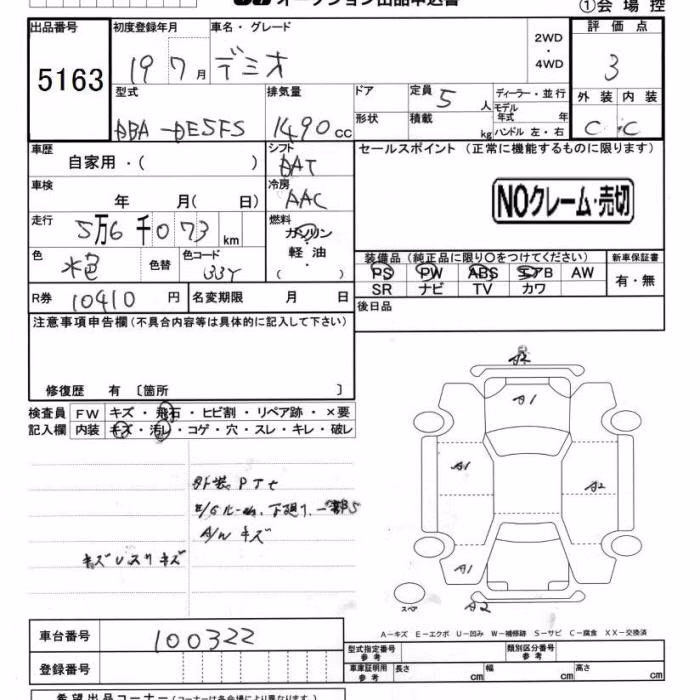 オークション出品申込書
①会場控
出品番号 初度登録年月 車名・グレード 評価点
5163 19 7月 デミオ 2WD・4WD 3
型式 排気量 ドア 定員 ディーラー・並行 外装 内装
DBA-DE5FS 1490cc 5人 モデル年式 年 C C
形状 積載 kg ハンドル 左・右
車歴 シフト セールスポイント (正常に機能するものに限ります)
自家用・( ) DAT
車検 冷房 NOクレーム・売切
年 月( 日) AAC
走行 燃料
5万6千073km ガソリン・軽油・( )
色 色替 色コード 装備品 (純正品に限り○をつけてください) 新車保証書
水色 33Y PS PW ABS エアB AW 有・無
SR ナビ TV カワ
R券 10410円 名変期限 月 日 後日品
注意事項申告欄(不具合内容等は具体的に記入して下さい)
修復歴 有 〔箇所 〕
検査員記入欄 FW キズ・飛石・ヒビ割・リペア跡・×要
内装 キズ・汚レ・コゲ・穴・スレ・キレ・破レ
外装PTセ
E/Gルーム、下廻り、一部S
A/Wキズ
キズUスリキズ
A2
A1
A1
A2
A1
スペア
A2
A-キズ E-エクボ U-凹み W-補修跡 S-サビ C-腐食 XX-交換済
車台番号 100322
登録番号
型式指定番号 参考 類別区分番号 参考
車庫証明用 参考 長さ cm 幅 cm 高さ cm
希望出品コーナー(コーナーは各会場により異なります。)